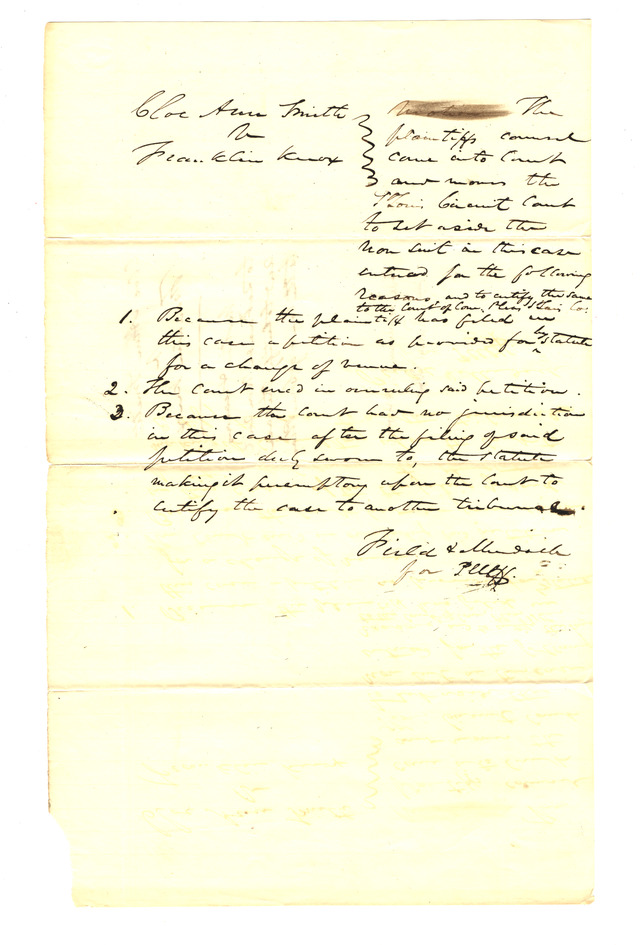 Cloe Ann Smith
v
Franklin Knox
The
plaintiffs counsel
come into Court
and moves the
St Louis Circuit Court
to set aside the
non suit in this case
entered for the following
reasons, and to certify the same
to the Court of Com. Pleas St Louis Co:
1. Because the plaintiff has filed in
this case a petition as provided for by statute
for a change of venue.
2. The Court erred in overruling said petition.
3. Because the court had no jurisdiction
in this case after the filing of said
petition duly sworn to, the statute
making it peremptory upon the Court to
certify the case to another tribunal.
Field &
for Plff.